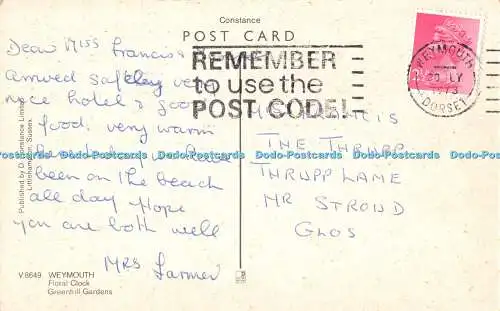 Constance
POST CARD
REMEMBER
to use the
POST CODE!
WEYMOUTH
1973
DORSET
Dear Miss Francis
Arrived safely very
nice hotel & good
food. very warm
been on the beach
all day Hope
you are both well
Mrs Larmer
THE THRUPP
THRUPP LAME
NR STROUD
GLOS
Published by D. Constance Limited,
Littlehampton, Sussex.
V8649 WEYMOUTH
Floral Clock
Greenhill Gardens
Dodo-Postcards Dodo-Postcards Dodo-Postcards Dodo-Postcards Dodo-Postcards